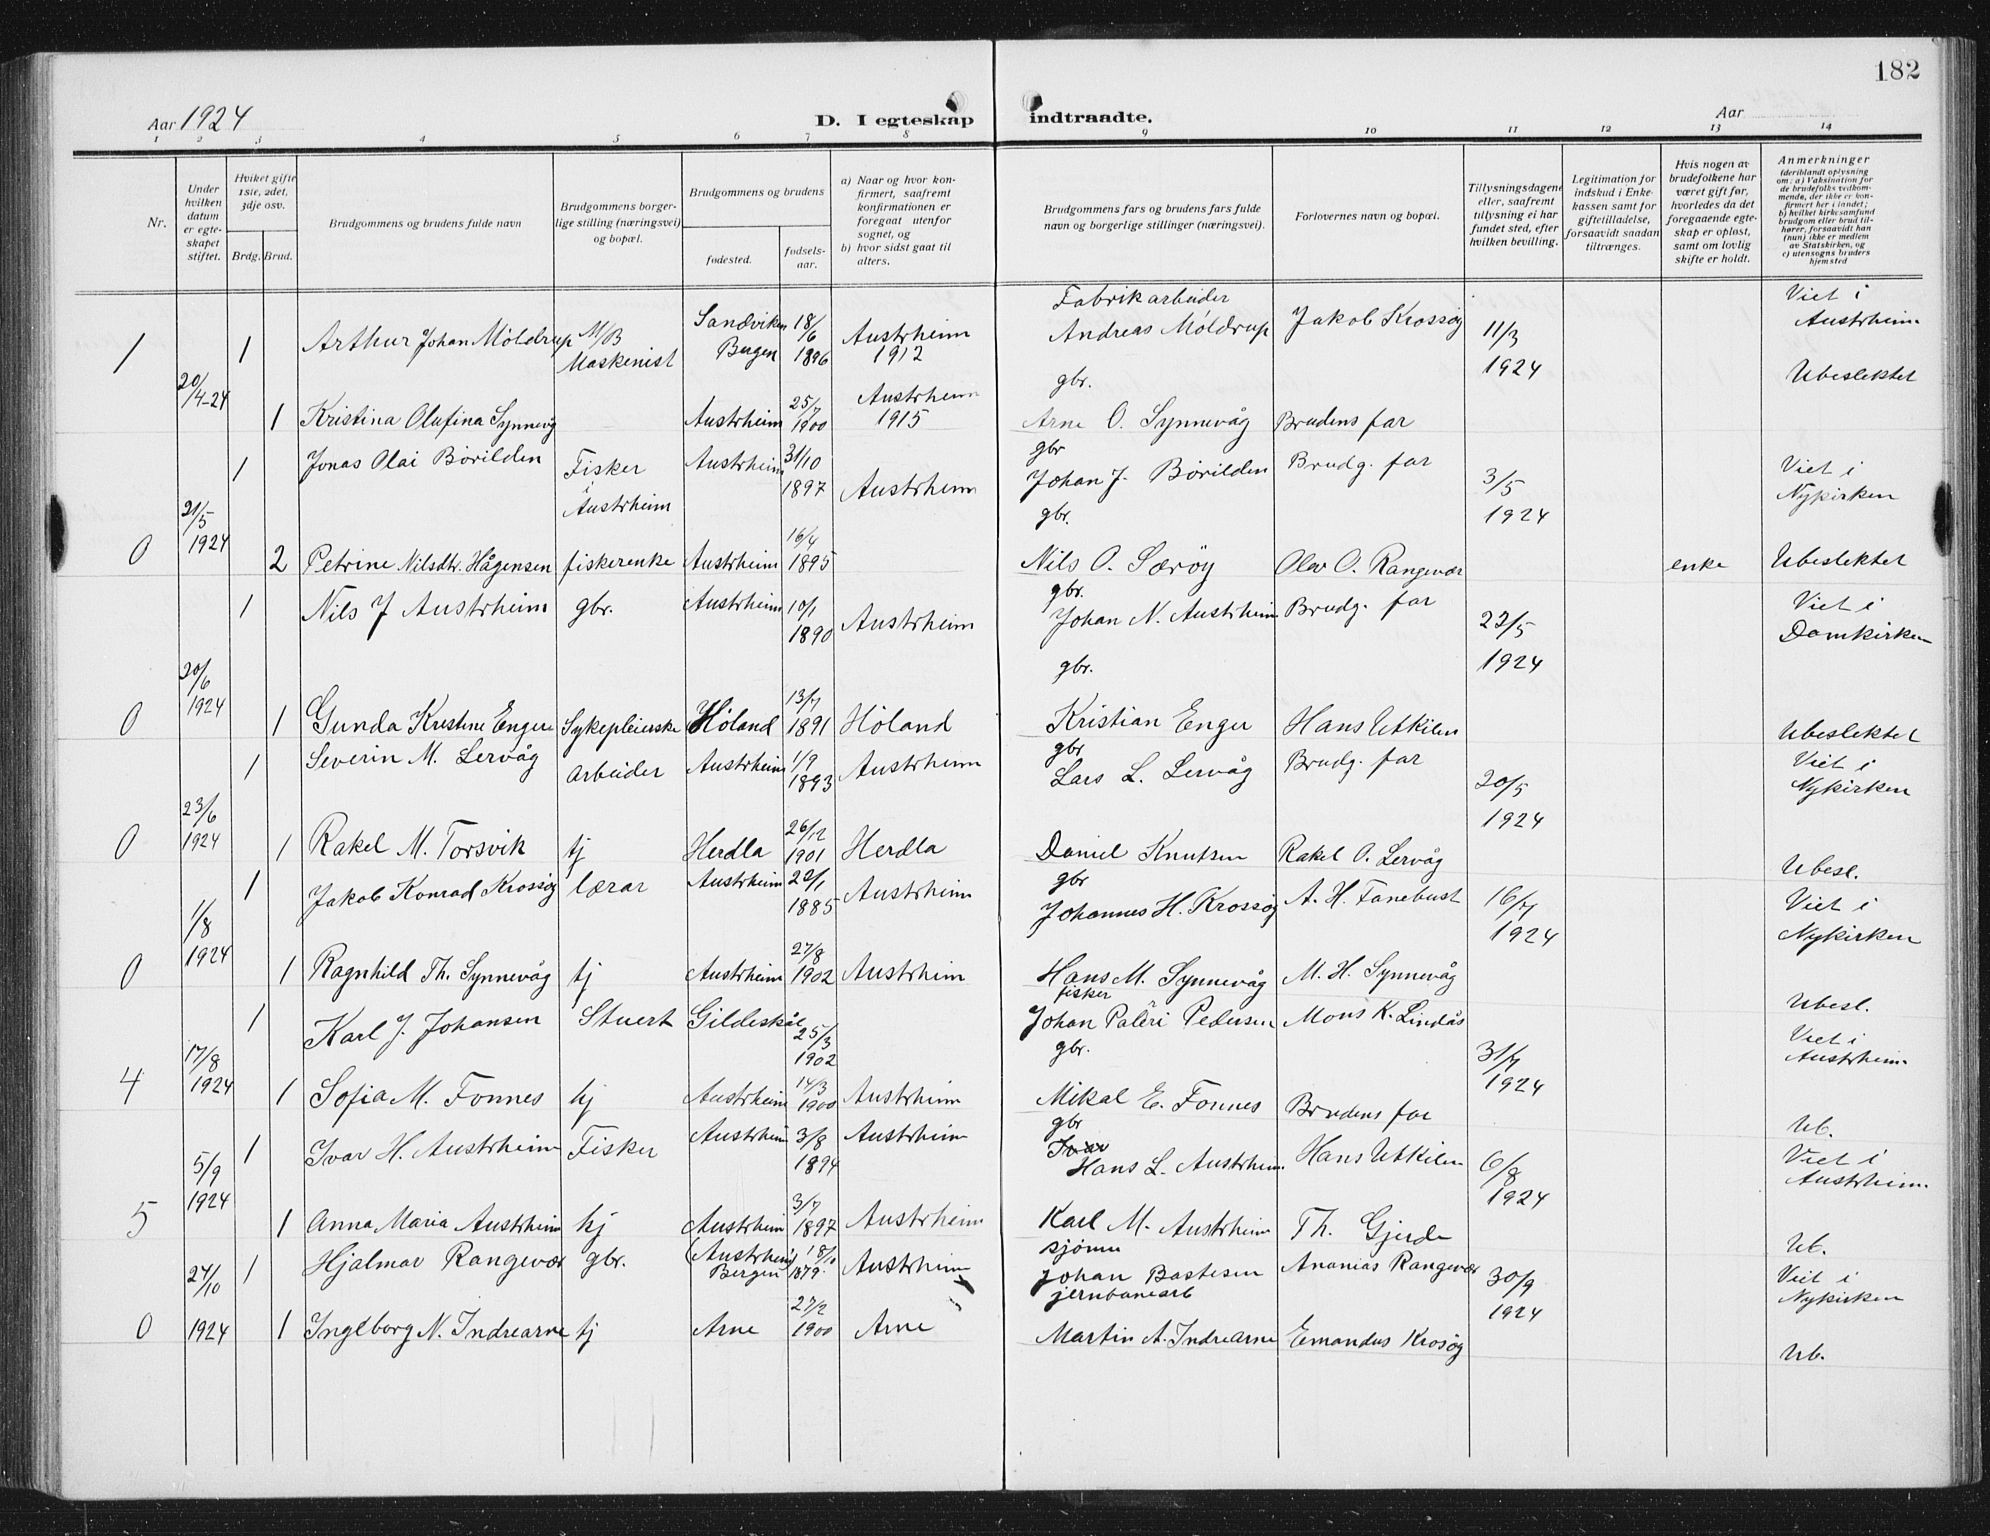 182
Aar 1924
D. I egteskap indtraadte.
Aar
1 2 3 4 5 6 7 8 9 10 11 12 13 14
Nr.
Under hvilken datum er egteskapet stiftet.
Hviket gifte 1ste, 2det, 3dje osv.
Brdg. Brud.
Brudgommens og brudens fulde navn
Brudgommens borgerlige stilling (næringsvei) og bopæl.
Brudgommens og brudens
fødested.
fødselsaar.
a) Naar og hvor konfirmert, saafremt konfirmationen er foregaat utenfor sognet, og
b) hvor sidst gaat til alters.
Brudgommens fars og brudens fars fulde navn og borgerlige stillinger (næringsvei).
Forlovernes navn og bopæl.
Tillysningsdagene eller, saafremt tillysning ei har fundet sted, efter hvilken bevilling.
Legitimation for indskud i Enkekassen samt for giftetilladelse, forsaavidt saadan tiltrænges.
Hvis nogen av brudefolkene har været gift før, hvorledes da det foregaaende egteskap er opløst, samt om lovlig skifte er holdt.
Anmerkninger (deriblandt oplysning om: a) Vaksination for de brudefolks vedkommende, der ikke er konfirmert her i landet; b) hvilket kirkesamfund brudgom eller brud tilhører, forsaavidt han (hun) ikke er medlem av Statskirken, og c) utensogns bruders hjemsted
1 20/4-24 1 Arthur Johan Møldrup M/B Maskenist Sandviken Bergen 18/6 1896 Austrheim 1912 Fabrikarbeider Andreas Møldrup Jakob Krossøy 11/3 1924 Viet i Austrheim
1 Kristina Olufina Synnevåg Austrheim 25/7 1900 Austrheim 1915 gbr. Arne O. Synnevåg Brudens far Ubeslektet
0 21/5 1924 1 Jonas Olai Børilden Fisker i Austrheim Austrheim 31/10 1897 Austrheim gbr Johan J. Børilden Brudg. far 3/5 1924 Viet i Nykirken
2 Petrine Nilsdtr. Hågensen fiskerenke Austrheim 16/4 1895 gbr. Nils O. Særøy Olav O. Rangevær enke Ubeslektet
0 20/6 1924 1 Nils J Austrheim gbr. Austrheim 10/1 1890 Austrheim gbr. Johan N. Austrheim Brudg. far 22/5 1924 Viet i Domkirken
1 Gunda Kristine Enger Sykepleierske Høland 13/7 1891 Høland gbr. Kristian Enger Hans Utkilen Ubeslektet
0 23/6 1924 1 Severin M. Lervåg Arbeider Austrheim 1/9 1893 Austrheim gbr Lars L. Lervåg Brudg. far 20/5 1924 Viet i Nykirken
1 Rakel M. Torsvik tj Herdla 26/12 1901 Herdla Daniel Knutsen Rakel O. Lervåg Ubesl.
0 1/8 1924 1 Jakob Konrad Krossøy lærar Austrheim 20/1 1885 Austrheim gbr Johannes H. Krossøy A. H. Fanebust 16/7 1924 Viet i Nykirken
1 Ragnhild Th. Synnevåg tj Austrheim 27/8 1902 Austrheim Hans M. Synnevåg M. H. Synnevåg Ubesl.
4 17/8 1924 1 Karl J. Johansen Stuert Gildeskål 25/3 1902 fisker Johan Pedersen Mons K. Lindås 31/7 1924 Viet i Austrheim
1 Sofia M. Fonnes hj Austrheim 14/3 1900 Austrheim gbr. Mikal E. Fonnes Brudens far Ub.
5 5/9 1924 1 Ivar H. Austrheim Fisker Austrheim 3/8 1894 Austrheim gbr Ivar Hans L. Austrheim Hans Utkilen 6/8 1924 Viet i Austrheim.
1 Anna Maria Austrheim hj Austrheim 3/7 1897 Austrheim Karl M. Austrheim Th. Gjerde Ub.
0 24/10 1924 1 Hjalmar Rangevær gbr. (Austrheim) Bergen 18/10 1879. Austrheim sjømn Johan Bastesen Ananias Rangevær 30/9 1924 Viet i Nykirken
1 Ingeborg N. Indrearne tj Arne 27/2 1900 Arne jernbanearb Martin A. Indrearne Emandus Krosøy Ub.